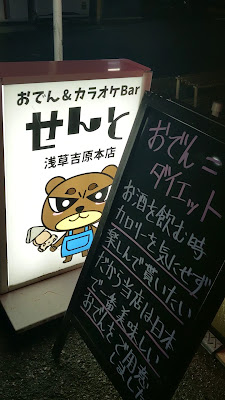 おでん&カラオケBar
せんと
浅草吉原本店
おでん＝
ダイエット
お酒を飲む時
カロリーを気にせず
楽しんで貰いたい
だから当店は日本
で一番美味しい
おでんをご用意
しました